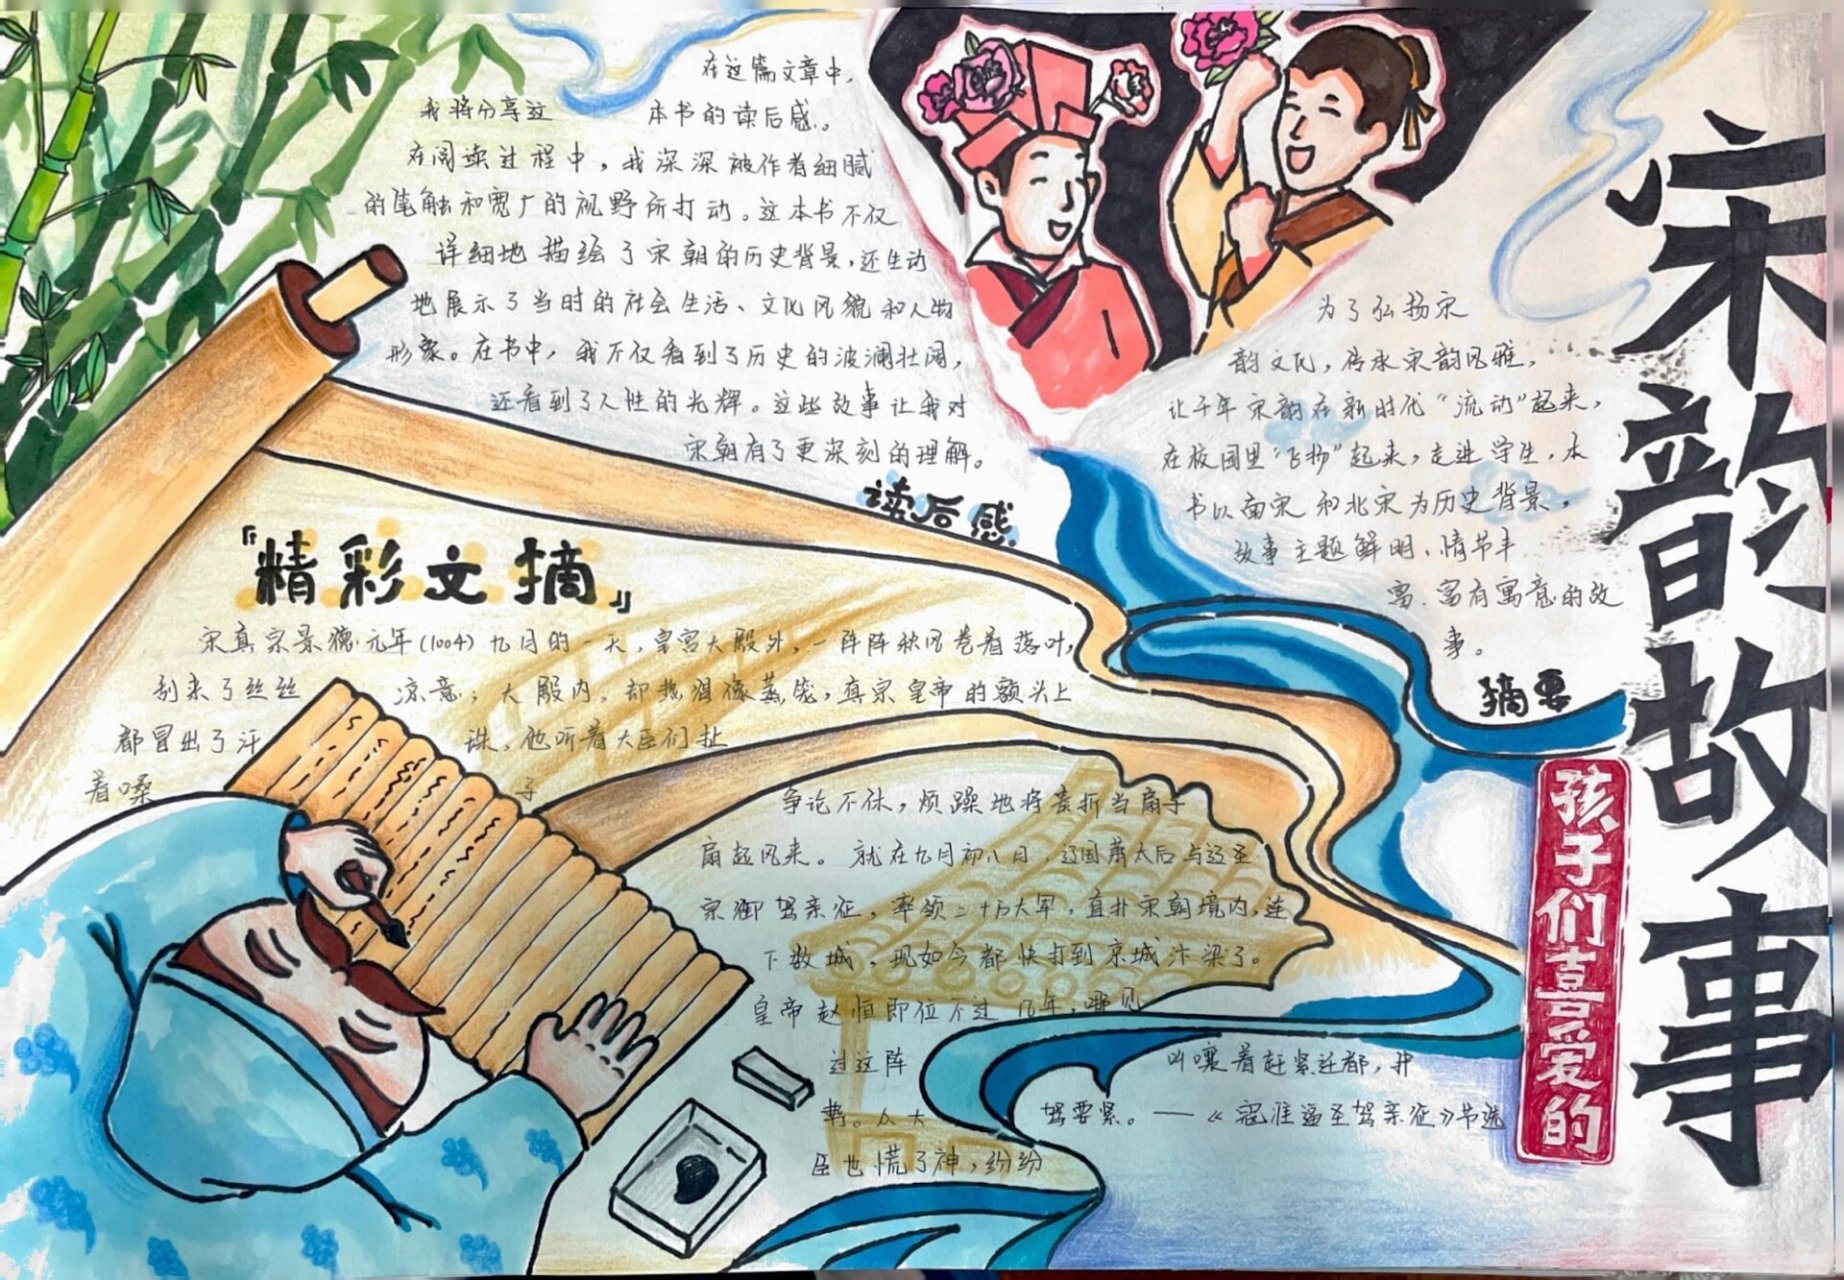 宋韵故事
孩子们喜爱的
在这篇文章中，
我将分享这 本书的读后感。
在阅读过程中，我深深被作者细腻
的笔触和宽广的视野所打动。这本书不仅
详细地描绘了宋朝的历史背景，还生动
地展示了当时的社会生活、文化风貌和人物
形象。在书中，我不仅看到了历史的波澜壮阔，
还看到了人性的光辉。这些故事让我对
宋朝有了更深刻的理解。
读后感
为了弘扬宋
韵文化，传承宋韵风雅，
让千年宋韵在新时代“流动”起来，
在校园里“飞扬”起来，走进学生，本
书以南宋和北宋为历史背景，
故事主题鲜明、情节丰
富、富有寓意的故
事。
摘要
『精彩文摘』
宋真宗景德元年(1004)九月的一天，皇宫大殿外，一阵阵秋风卷着落叶，
刮来了丝丝 凉意；大殿内，却热得像蒸笼，真宗皇帝的额头上
都冒出了汗 珠，他听着大臣们扯
着嗓 子
争论不休，烦躁地将奏折当扇子
扇起风来。就在九月初八日，辽国萧太后与辽圣
宗御驾亲征，率领二十万大军，直扑宋朝境内，连
下数城，现如今都快打到京城汴梁了。
皇帝赵恒即位不过 年，哪见
过这阵
势。众大
臣也慌了神，纷纷
叫嚷着赶紧迁都，并
驾要紧。——《寇准逼圣驾亲征》节选